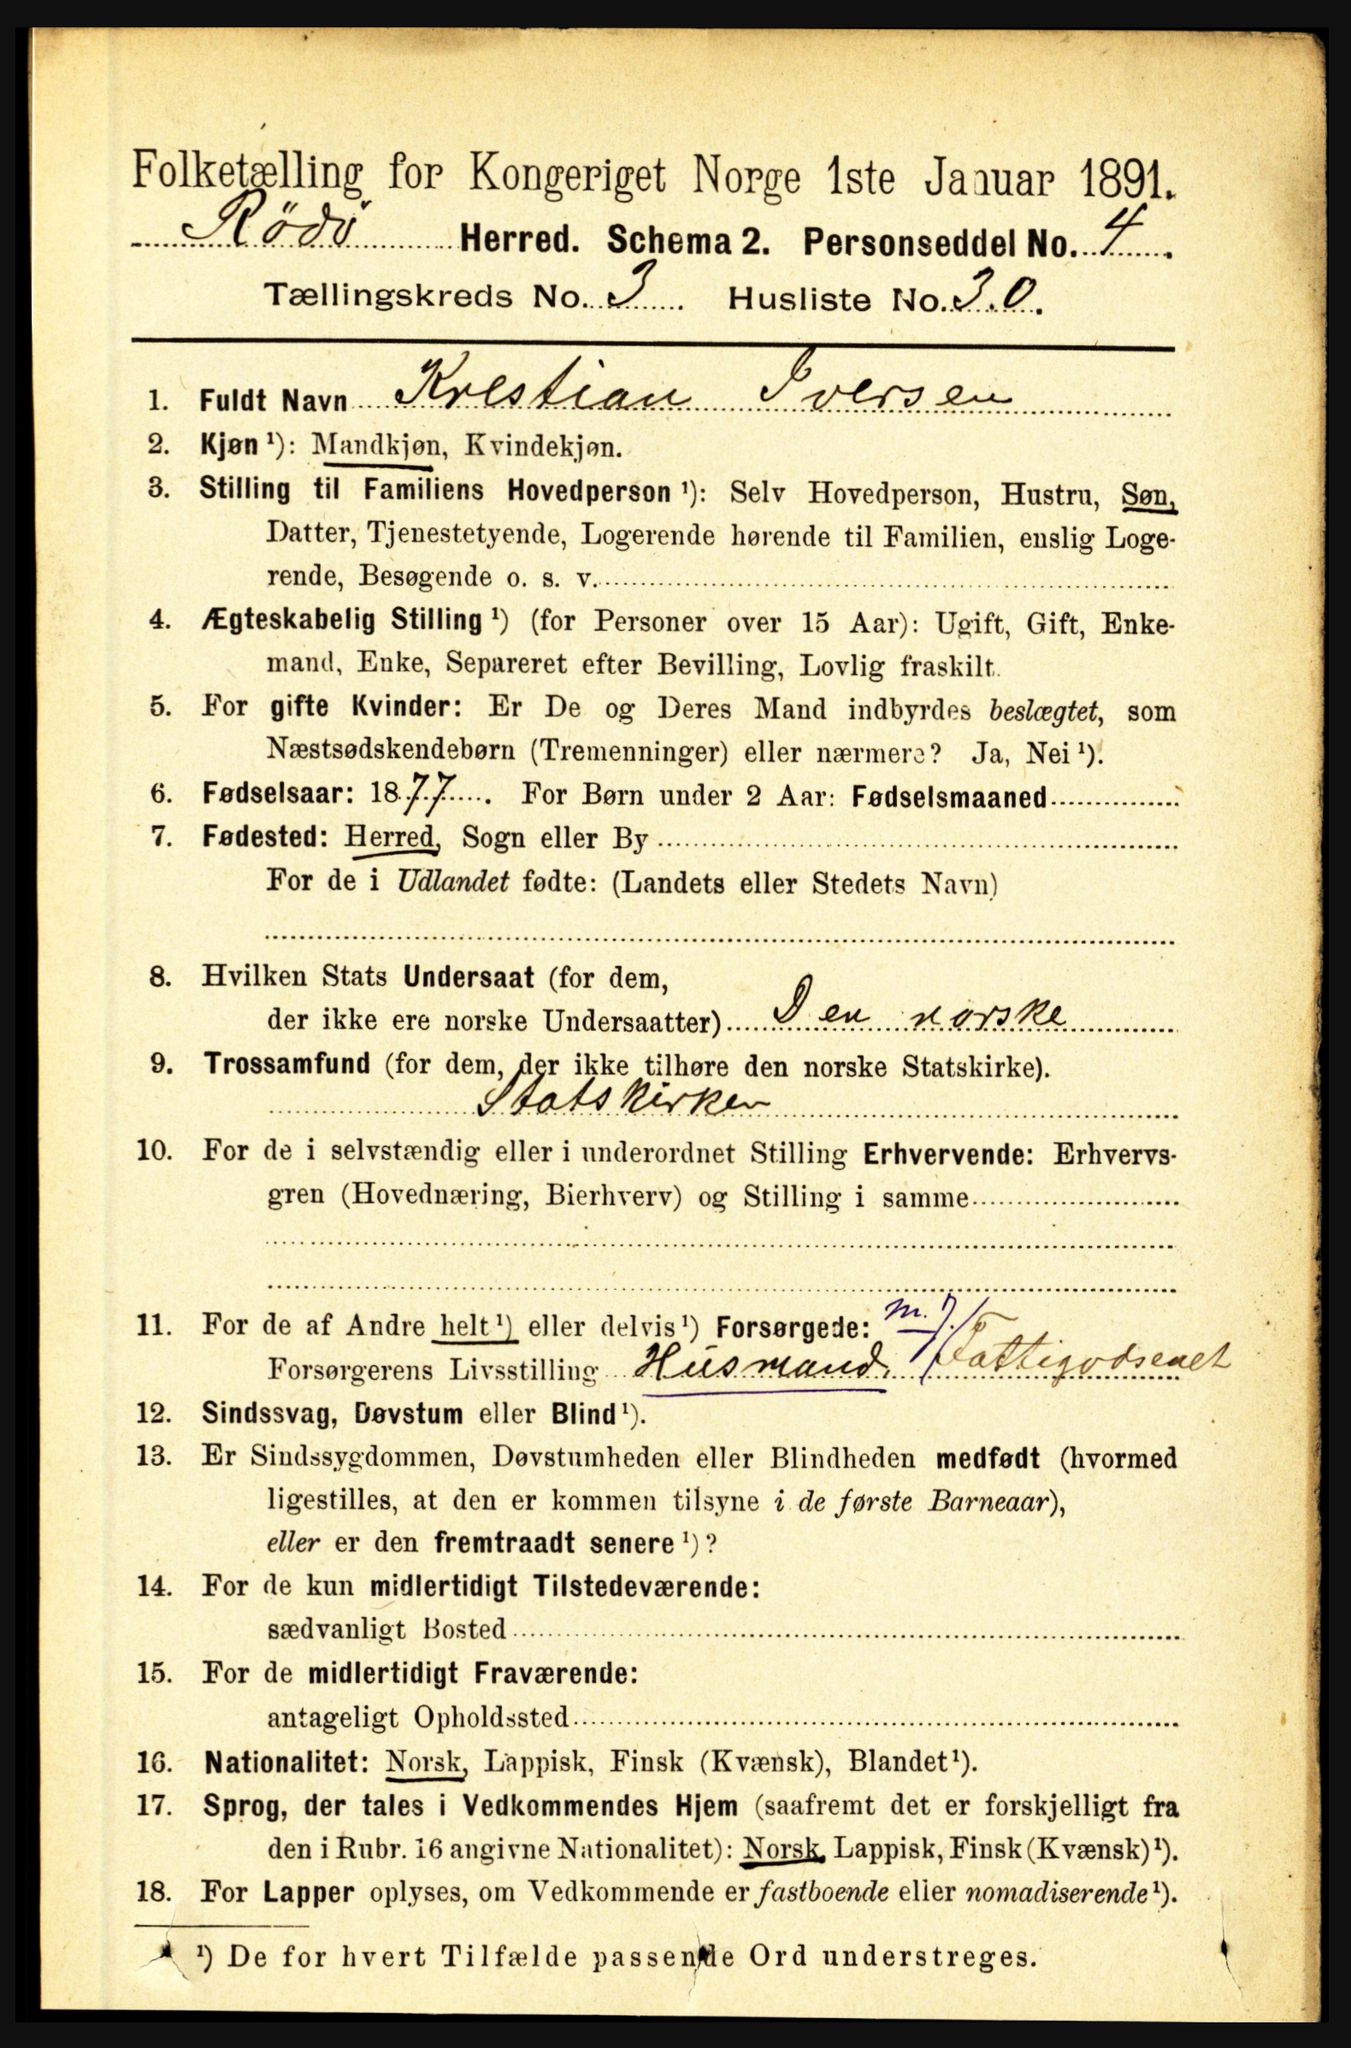 Folketælling for Kongeriget Norge 1ste Januar 1891.
Rödö Herred. Schema 2. Personseddel No. 4.
Tællingskreds No. 3. Husliste No. 30.
1. Fuldt Navn Krestian Iversen
2. Kjøn ¹): Mandkjøn, Kvindekjøn.
3. Stilling til Familiens Hovedperson ¹): Selv Hovedperson, Hustru, Søn,
Datter, Tjenestetyende, Logerende hørende til Familien, enslig Loge-
rende, Besøgende o. s. v.
4. Ægteskabelig Stilling ¹) (for Personer over 15 Aar): Ugift, Gift, Enke-
mand, Enke, Separeret efter Bevilling, Lovlig fraskilt.
5. For gifte Kvinder: Er De og Deres Mand indbyrdes beslægtet, som
Næstsødskendebørn (Tremenninger) eller nærmere? Ja, Nei ¹).
6. Fødselsaar: 1877. For Børn under 2 Aar: Fødselsmaaned
7. Fødested: Herred, Sogn eller By
For de i Udlandet fødte: (Landets eller Stedets Navn)
8. Hvilken Stats Undersaat (for dem,
der ikke ere norske Undersaatter) Den norske
9. Trossamfund (for dem, der ikke tilhøre den norske Statskirke).
Statskirken
10. For de i selvstændig eller i underordnet Stilling Erhvervende: Erhvervs-
gren (Hovednæring, Bierhverv) og Stilling i samme
11. For de af Andre helt ¹) eller delvis ¹) Forsørgede: m. J./
Forsørgerens Livsstilling Husmand. Fattigvdsenet
12. Sindssvag, Døvstum eller Blind ¹).
13. Er Sindssygdommen, Døvstumheden eller Blindheden medfødt (hvormed
ligestilles, at den er kommen tilsyne i de første Barneaar),
eller er den fremtraadt senere ¹)?
14. For de kun midlertidigt Tilstedeværende:
sædvanligt Bosted
15. For de midlertidigt Fraværende:
antageligt Opholdssted
16. Nationalitet: Norsk, Lappisk, Finsk (Kvænsk), Blandet ¹).
17. Sprog, der tales i Vedkommendes Hjem (saafremt det er forskjelligt fra
den i Rubr. 16 angivne Nationalitet): Norsk, Lappisk, Finsk (Kvænsk) ¹).
18. For Lapper oplyses, om Vedkommende er fastboende eller nomadiserende ¹).
¹) De for hvert Tilfælde passende Ord understreges.